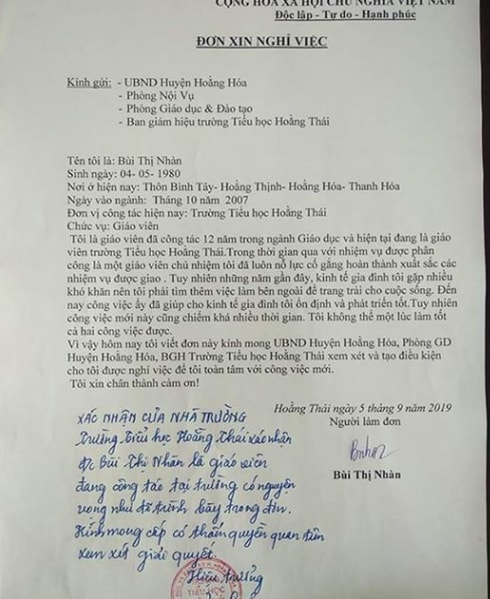 CỘNG HÒA XÃ HỘI CHỦ NGHĨA VIỆT NAM
Độc lập - Tự do - Hạnh phúc
ĐƠN XIN NGHỈ VIỆC
Kính gửi: - UBND Huyện Hoằng Hóa
- Phòng Nội Vụ
- Phòng Giáo dục & Đào tạo
- Ban giám hiệu trường Tiểu học Hoằng Thái
Tên tôi là: Bùi Thị Nhàn
Sinh ngày: 04- 05- 1980
Nơi ở hiện nay: Thôn Bình Tây- Hoằng Thịnh- Hoằng Hóa- Thanh Hóa
Ngày vào ngành: Tháng 10 năm 2007
Đơn vị công tác hiện nay: Trường Tiểu học Hoằng Thái
Chức vụ: Giáo viên
Tôi là giáo viên đã công tác 12 năm trong ngành Giáo dục và hiện tại đang là giáo
viên trường Tiểu học Hoằng Thái.Trong thời gian qua với nhiệm vụ được phân
công là một giáo viên chủ nhiệm tôi đã luôn nỗ lực cố gắng hoàn thành xuất sắc các
nhiệm vụ được giao . Tuy nhiên những năm gần đây, kinh tế gia đình tôi gặp nhiều
khó khăn nên tôi phải tìm thêm việc làm bên ngoài để trang trải cho cuộc sống. Đến
nay công việc ấy đã giúp cho kinh tế gia đình tôi ổn định và phát triển tốt.Tuy nhiên
công việc mới này cũng chiếm khá nhiều thời gian. Tôi không thể một lúc làm tốt
cả hai công việc được.
Vì vậy hôm nay tôi viết đơn này kính mong UBND Huyện Hoằng Hóa, Phòng GD
Huyện Hoằng Hóa, BGH Trường Tiểu học Hoằng Thái xem xét và tạo điều kiện
cho tôi được nghỉ việc để tôi toàn tâm với công việc mới.
Tôi xin chân thành cảm ơn!
Hoằng Thái ngày 5 tháng 9 năm 2019
Người làm đơn
Bùi Thị Nhàn
XÁC NHẬN CỦA NHÀ TRƯỜNG
Trường Tiểu học Hoằng Thái xác nhận
đ/c Bùi Thị Nhàn là giáo viên
đang công tác tại trường có nguyện
vọng như đã trình bày trong đơn.
Kính mong cấp có thẩm quyền quan tâm
xem xét giải quyết.
Hiệu trưởng
TIỂU HỌC